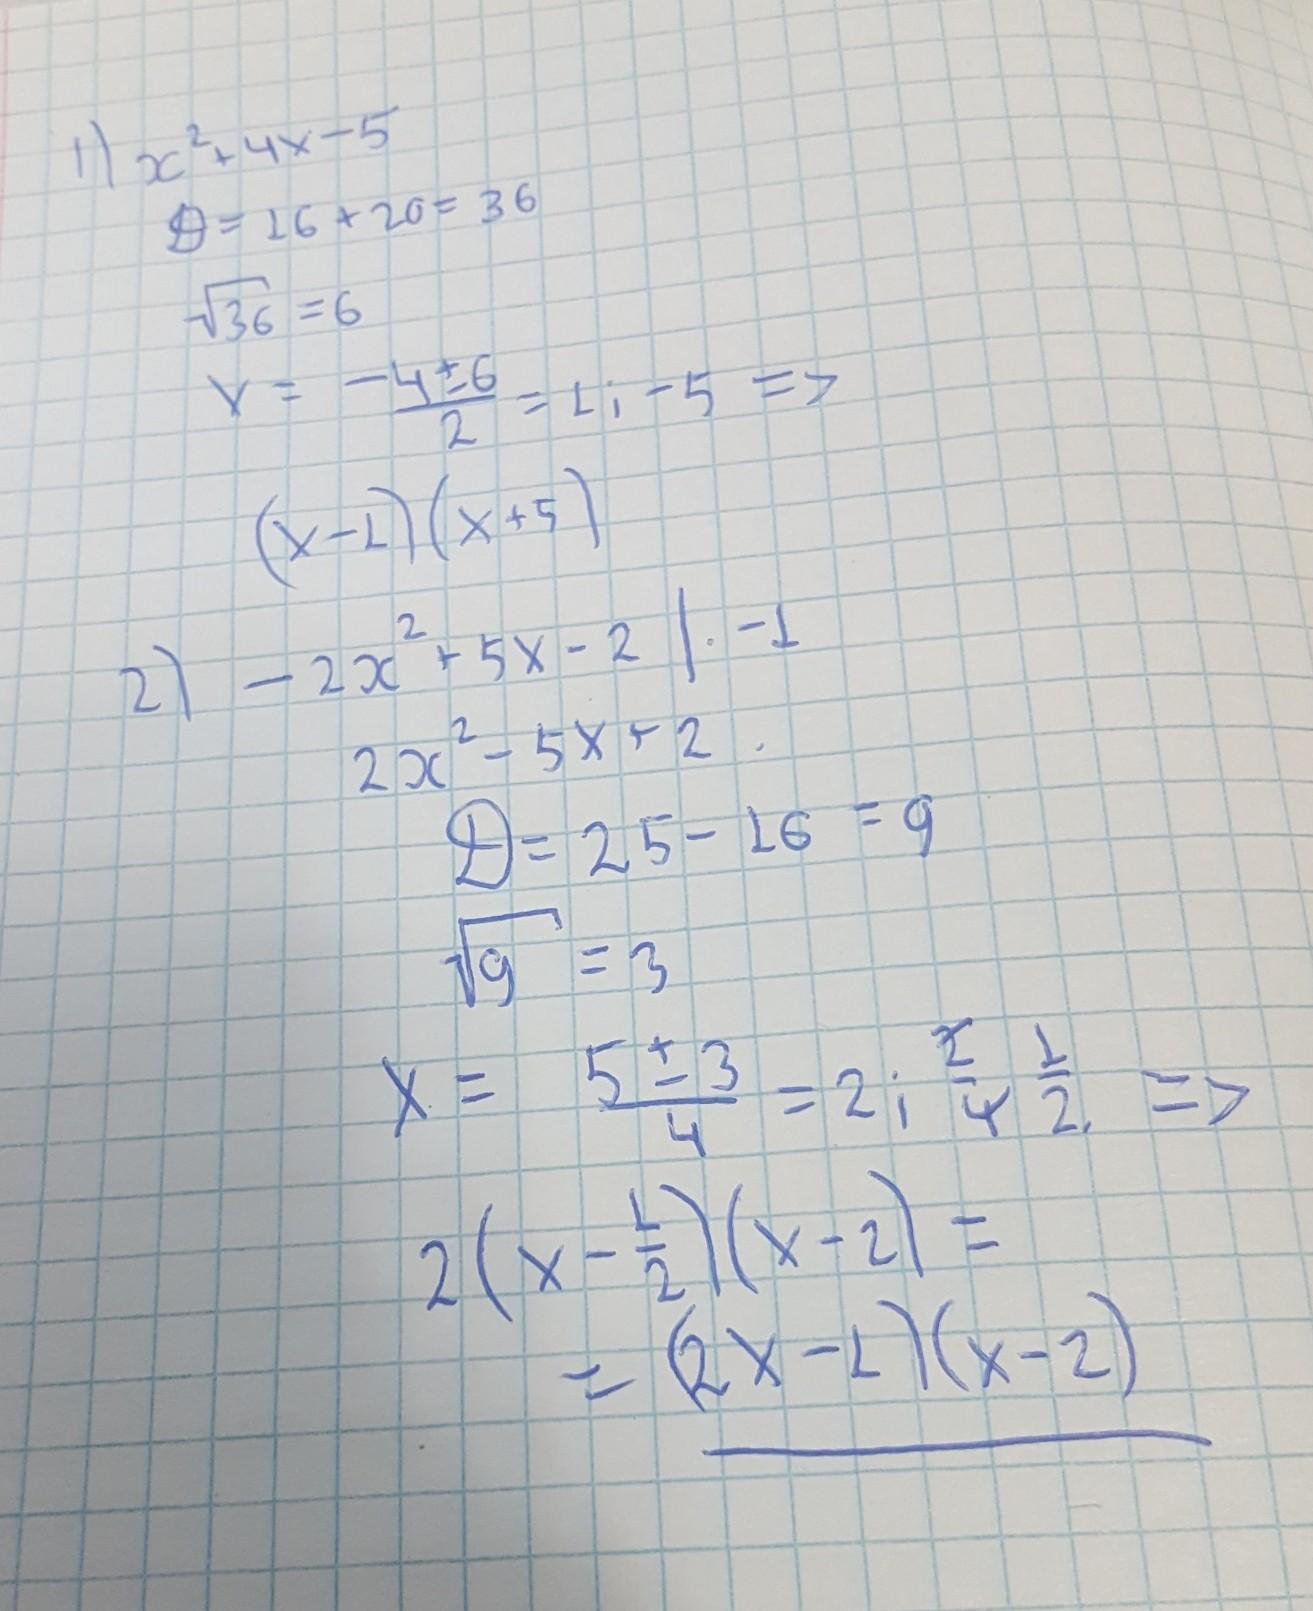 1) x²+4x-5
D= 16+20=36
√36=6
x= (-4±6)/2 = 1; -5 =>
(x-1)(x+5)
2) -2x²+5x-2 |·-1
2x²-5x+2
D= 25-16=9
√9=3
x= (5±3)/4 = 2; 2/4 1/2 =>
2(x-1/2)(x-2)=
=(2x-1)(x-2)